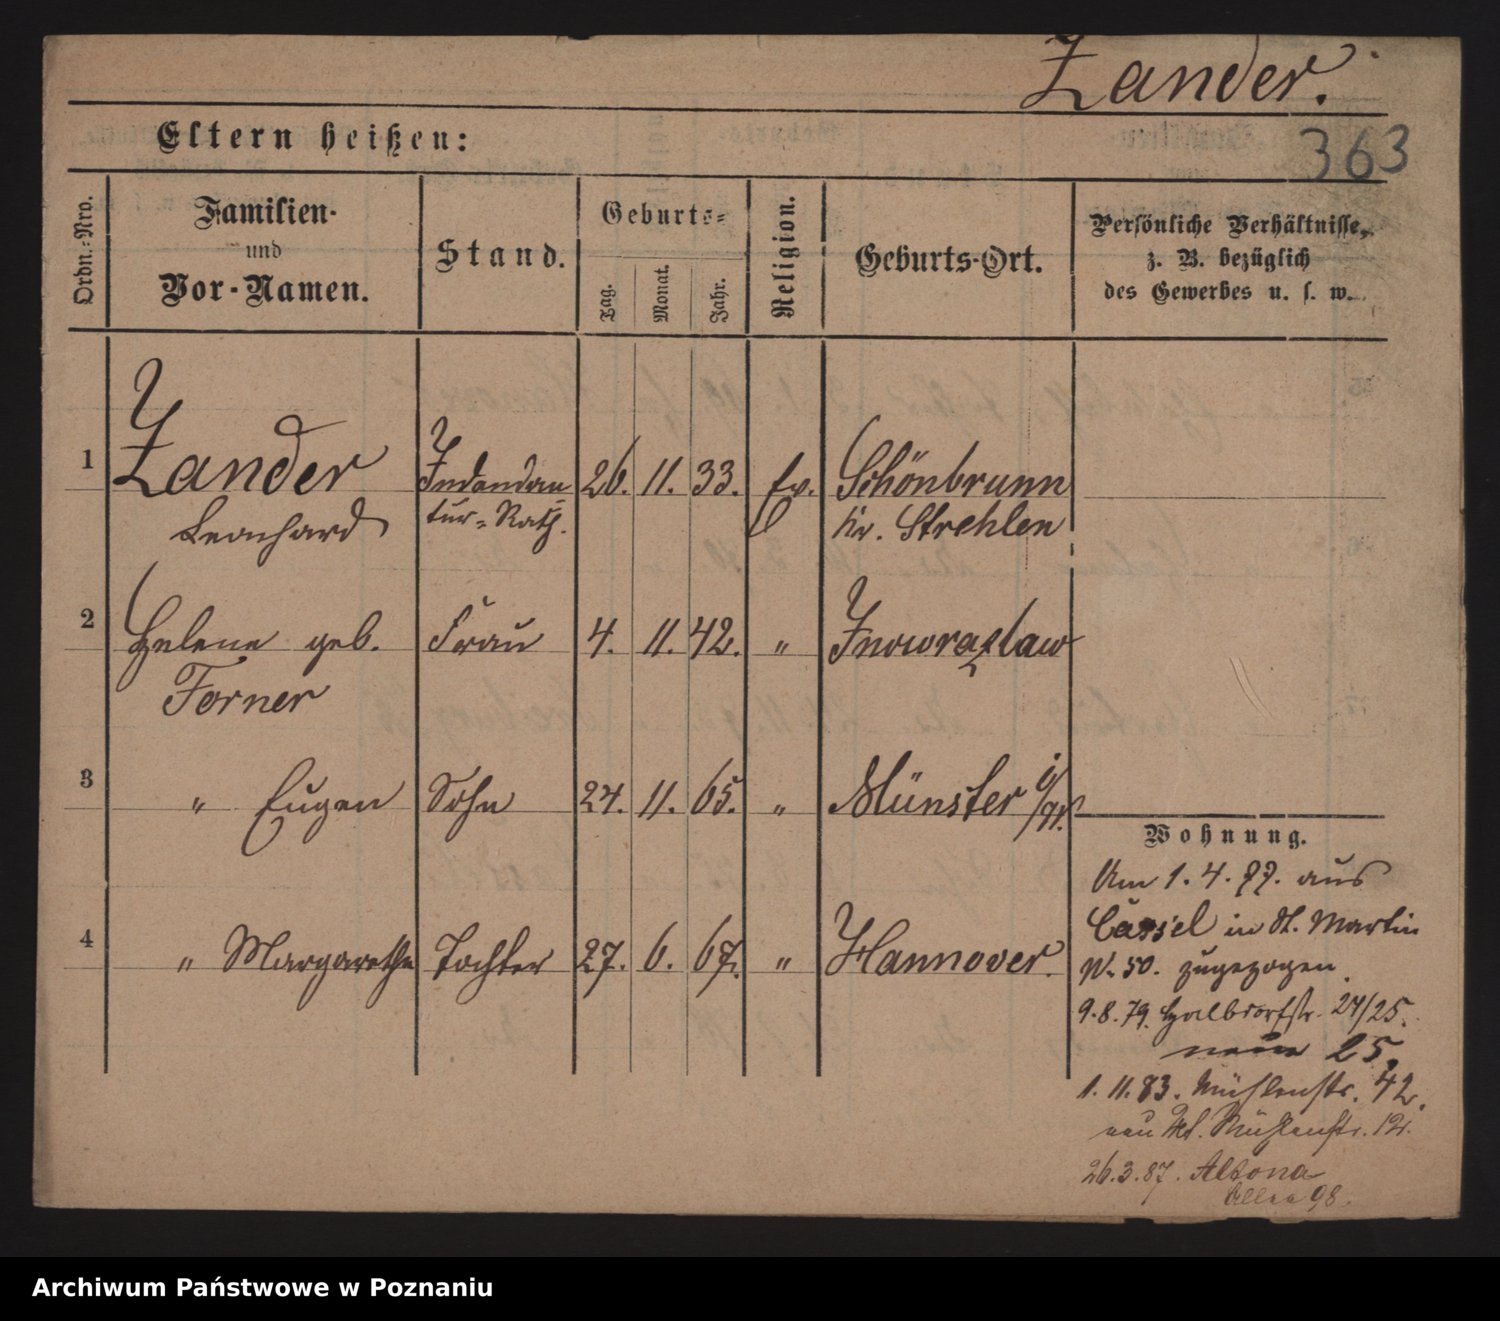 Zander.
363
Eltern heißen:
Ordn.-Nro.
Familien-
und
Vor-Namen.
Stand.
Geburts-
Tag.
Monat.
Jahr.
Religion.
Geburts-Ort.
Persönliche Verhältnisse,
z. B. bezüglich
des Gewerbes u. s. w.
1 Zander Intendan 26. 11. 33. Ev. Schönbrunn
Leonhard tur-Rath. Kr. Strehlen
2 Helene geb. Frau 4. 11. 42. " Inowrazlaw
Forner
3 " Eugen Sohn 24. 11. 65. " Münster i/W.
4 " Margarethe Tochter 27. 6. 67. " Hannover.
Wohnung.
Am 1. 4. 77. aus
Cassel in St. Martin
N. 50. zugezogen.
9. 8. 79. Halbdorfstr. 24/25.
neue 25.
1. 11. 83. Mühlenstr. 42.
neu Mühlenstr. 12.
26. 3. 87. Altona
Allee 98.
Archiwum Państwowe w Poznaniu